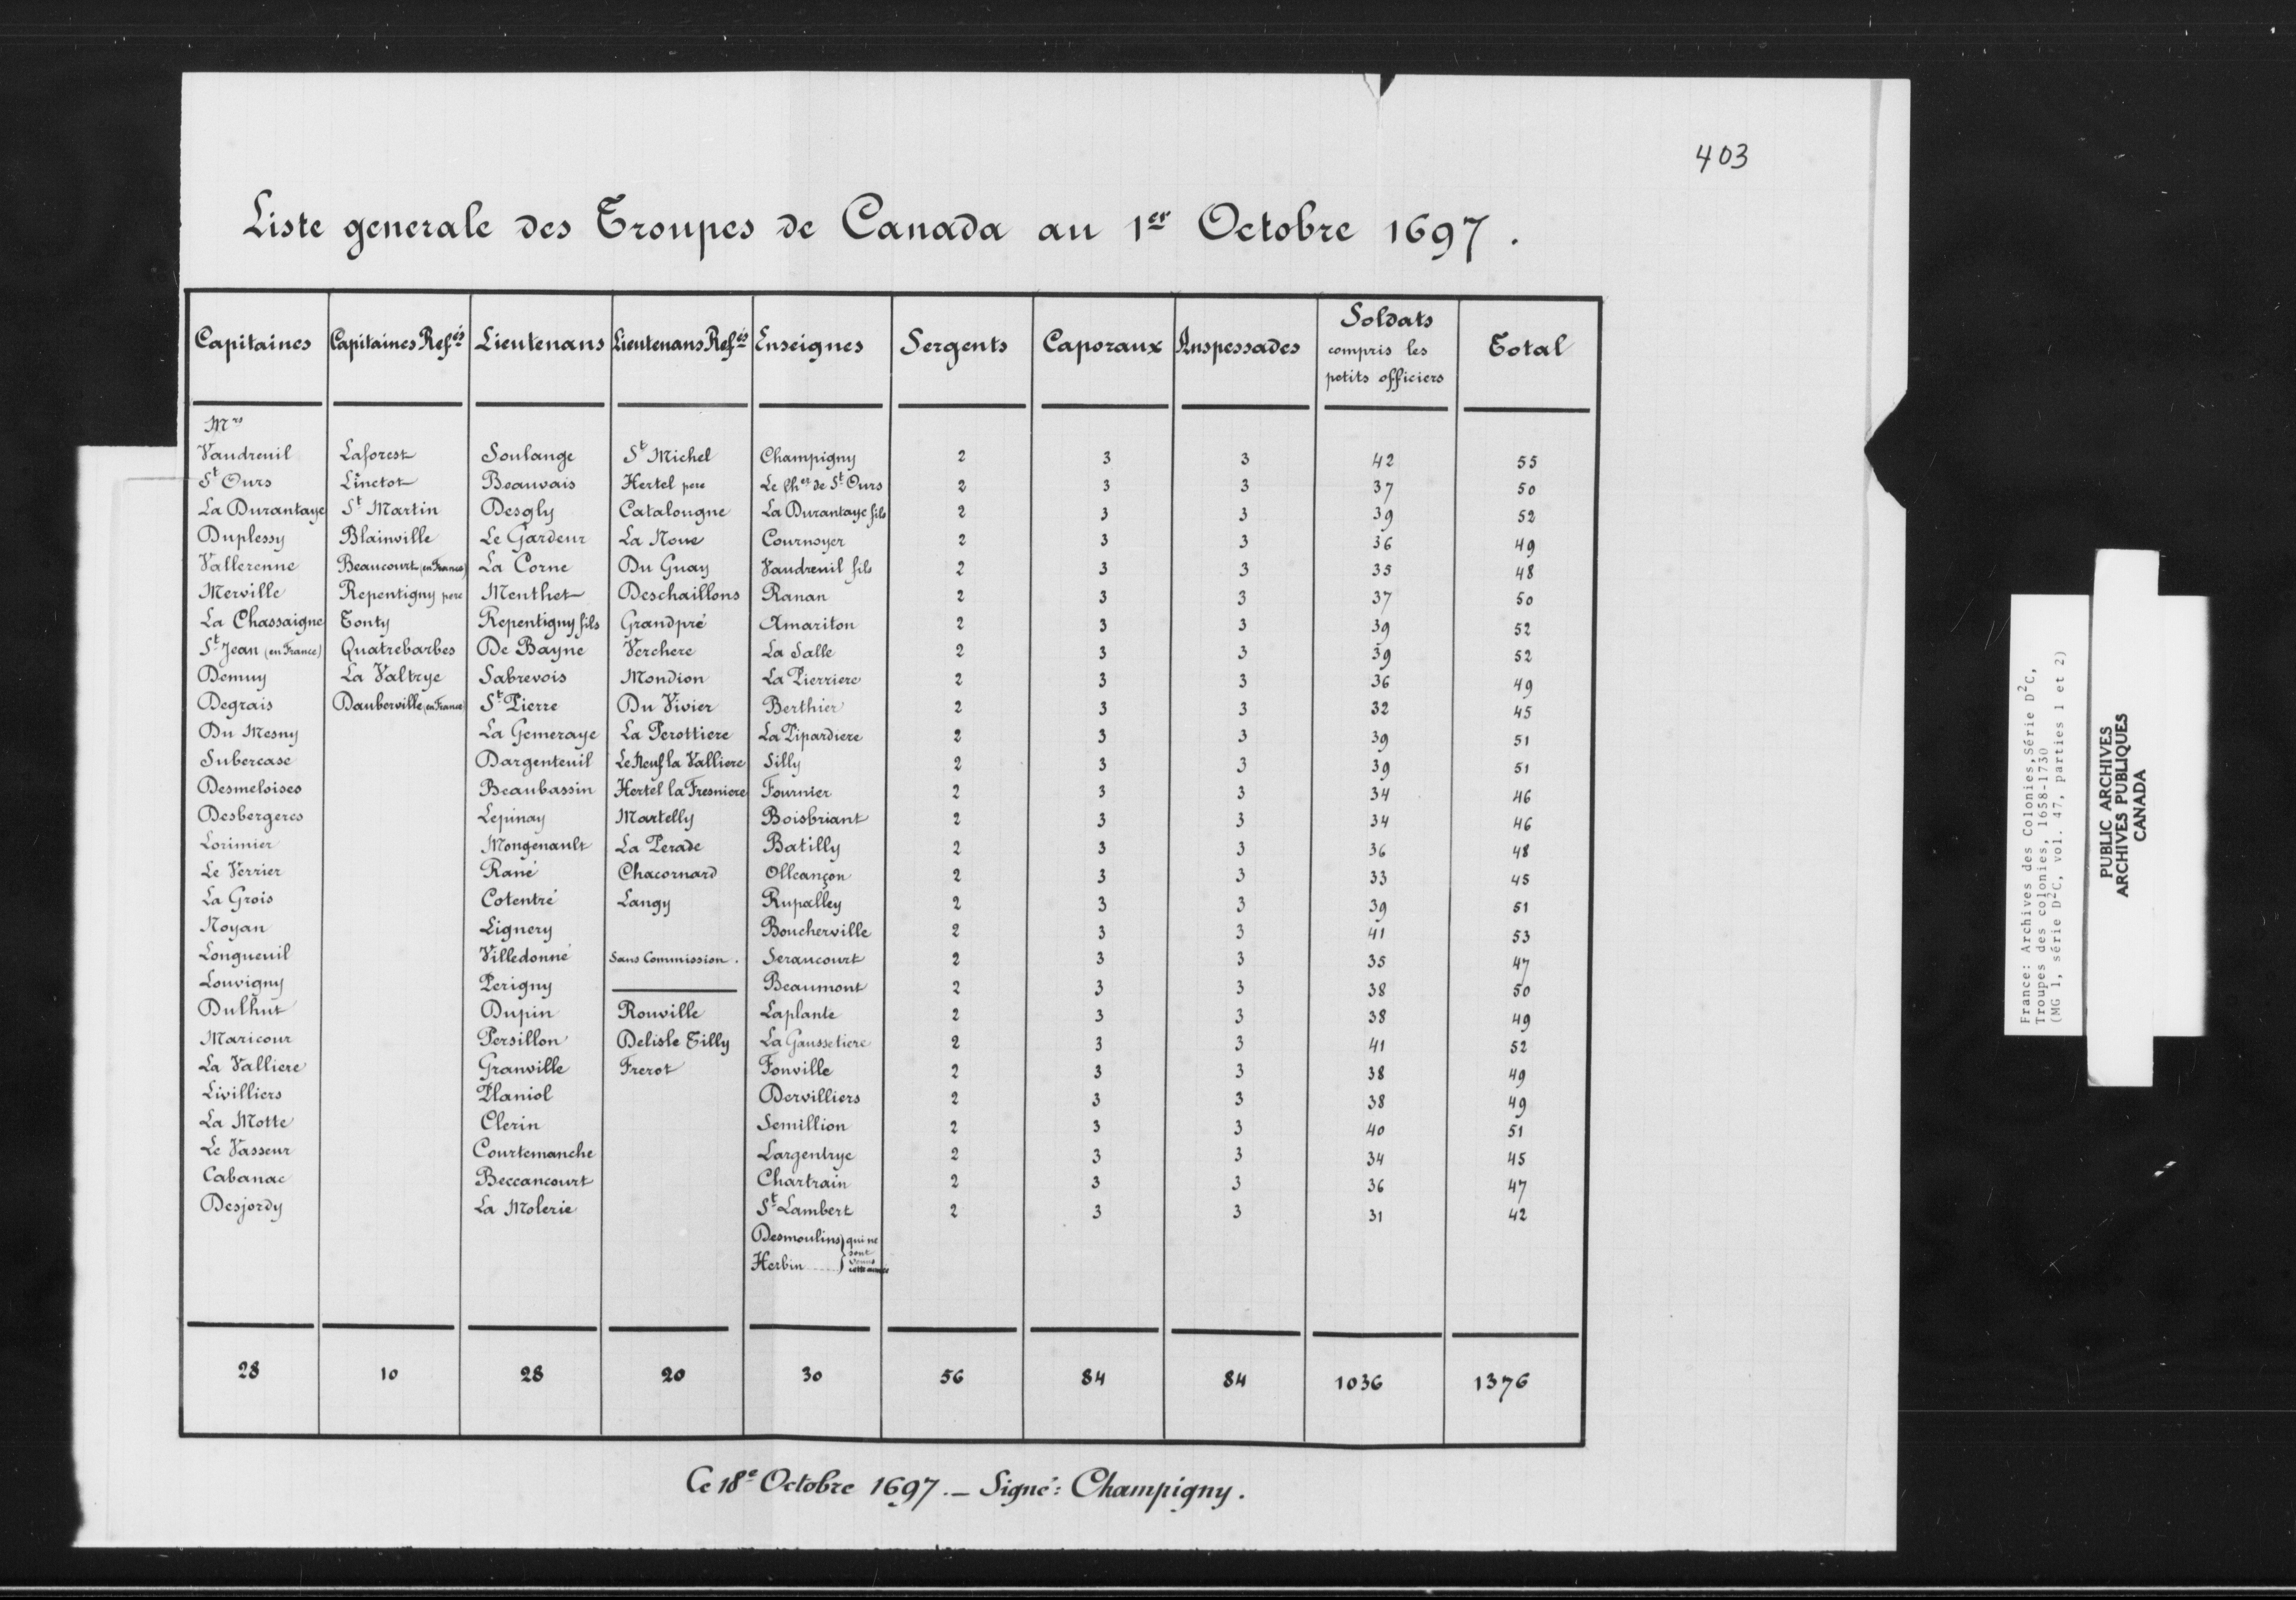 403
Liste generale des Troupes de Canada au 1er Octobre 1697.
Capitaines Capitaines Refés Lieutenans Lieutenans Refés Enseignes Sergents Caporaux Anspessades Soldats compris les petits officiers Total
Mrs
Vaudreuil Laforest Soulange St Michel Champigny 2 3 3 42 55
St Ours Linctot Beauvais Hertel pere Le Cher de St Ours 2 3 3 37 50
La Durantaye St Martin Desgly Catalougne La Durantaye fils 2 3 3 39 52
Duplessy Blainville Le Gardeur La Noue Cournoyer 2 3 3 36 49
Vallerenne Beaucourt (en France) La Corne Du Guay Vaudreuil fils 2 3 3 35 48
Merville Repentigny pere Menthet Deschaillons Ranan 2 3 3 37 50
La Chassaigne Tonty Repentigny fils Grandpré Amariton 2 3 3 39 52
St Jean (en France) Quatrebarbes De Bayne Verchere La Salle 2 3 3 39 52
Demuy La Valtrye Sabrevois Mondion La Pierriere 2 3 3 36 49
Degrais Dauberville (en France) St Pierre Du Vivier Berthier 2 3 3 32 45
Du Mesny La Gemeraye La Perottiere La Pipardiere 2 3 3 39 51
Subercase Dargenteuil Le Neuf la Valliere Silly 2 3 3 39 51
Desmeloises Beaubassin Hertel la Fresniere Fournier 2 3 3 34 46
Desbergeres Lepinay Martelly Boisbriant 2 3 3 34 46
Lorimier Mongenault La Perade Batilly 2 3 3 36 48
Le Verrier Rané Chacornard Olleançon 2 3 3 33 45
La Grois Cotentré Langy Rupalley 2 3 3 39 51
Noyan Lignery Boucherville 2 3 3 41 53
Longueuil Villedonné Sans Commission. Serancourt 2 3 3 35 47
Louvigny Perigny Beaumont 2 3 3 38 50
Dulhut Dupin Rouville Laplante 2 3 3 38 49
Maricour Persillon Delisle Tilly La Gaussetiere 2 3 3 41 52
La Valliere Granville Frerot Fonville 2 3 3 38 49
Livilliers Planiol Dervilliers 2 3 3 38 49
La Motte Clerin Semillion 2 3 3 40 51
Le Vasseur Courtemanche Largentrye 2 3 3 34 45
Cabanac Beccancourt Chartrain 2 3 3 36 47
Desjordy La Molerie St Lambert 2 3 3 31 42
Desmoulins } qui ne sont
Herbin ..... }
28 10 28 20 30 56 84 84 1036 1376
Ce 18e Octobre 1697. — Signé: Champigny.
France: Archives des Colonies, Série D2C,
Troupes des colonies, 1658-1730
(MG 1, série D2C, vol. 47, parties 1 et 2)
PUBLIC ARCHIVES
ARCHIVES PUBLIQUES
CANADA